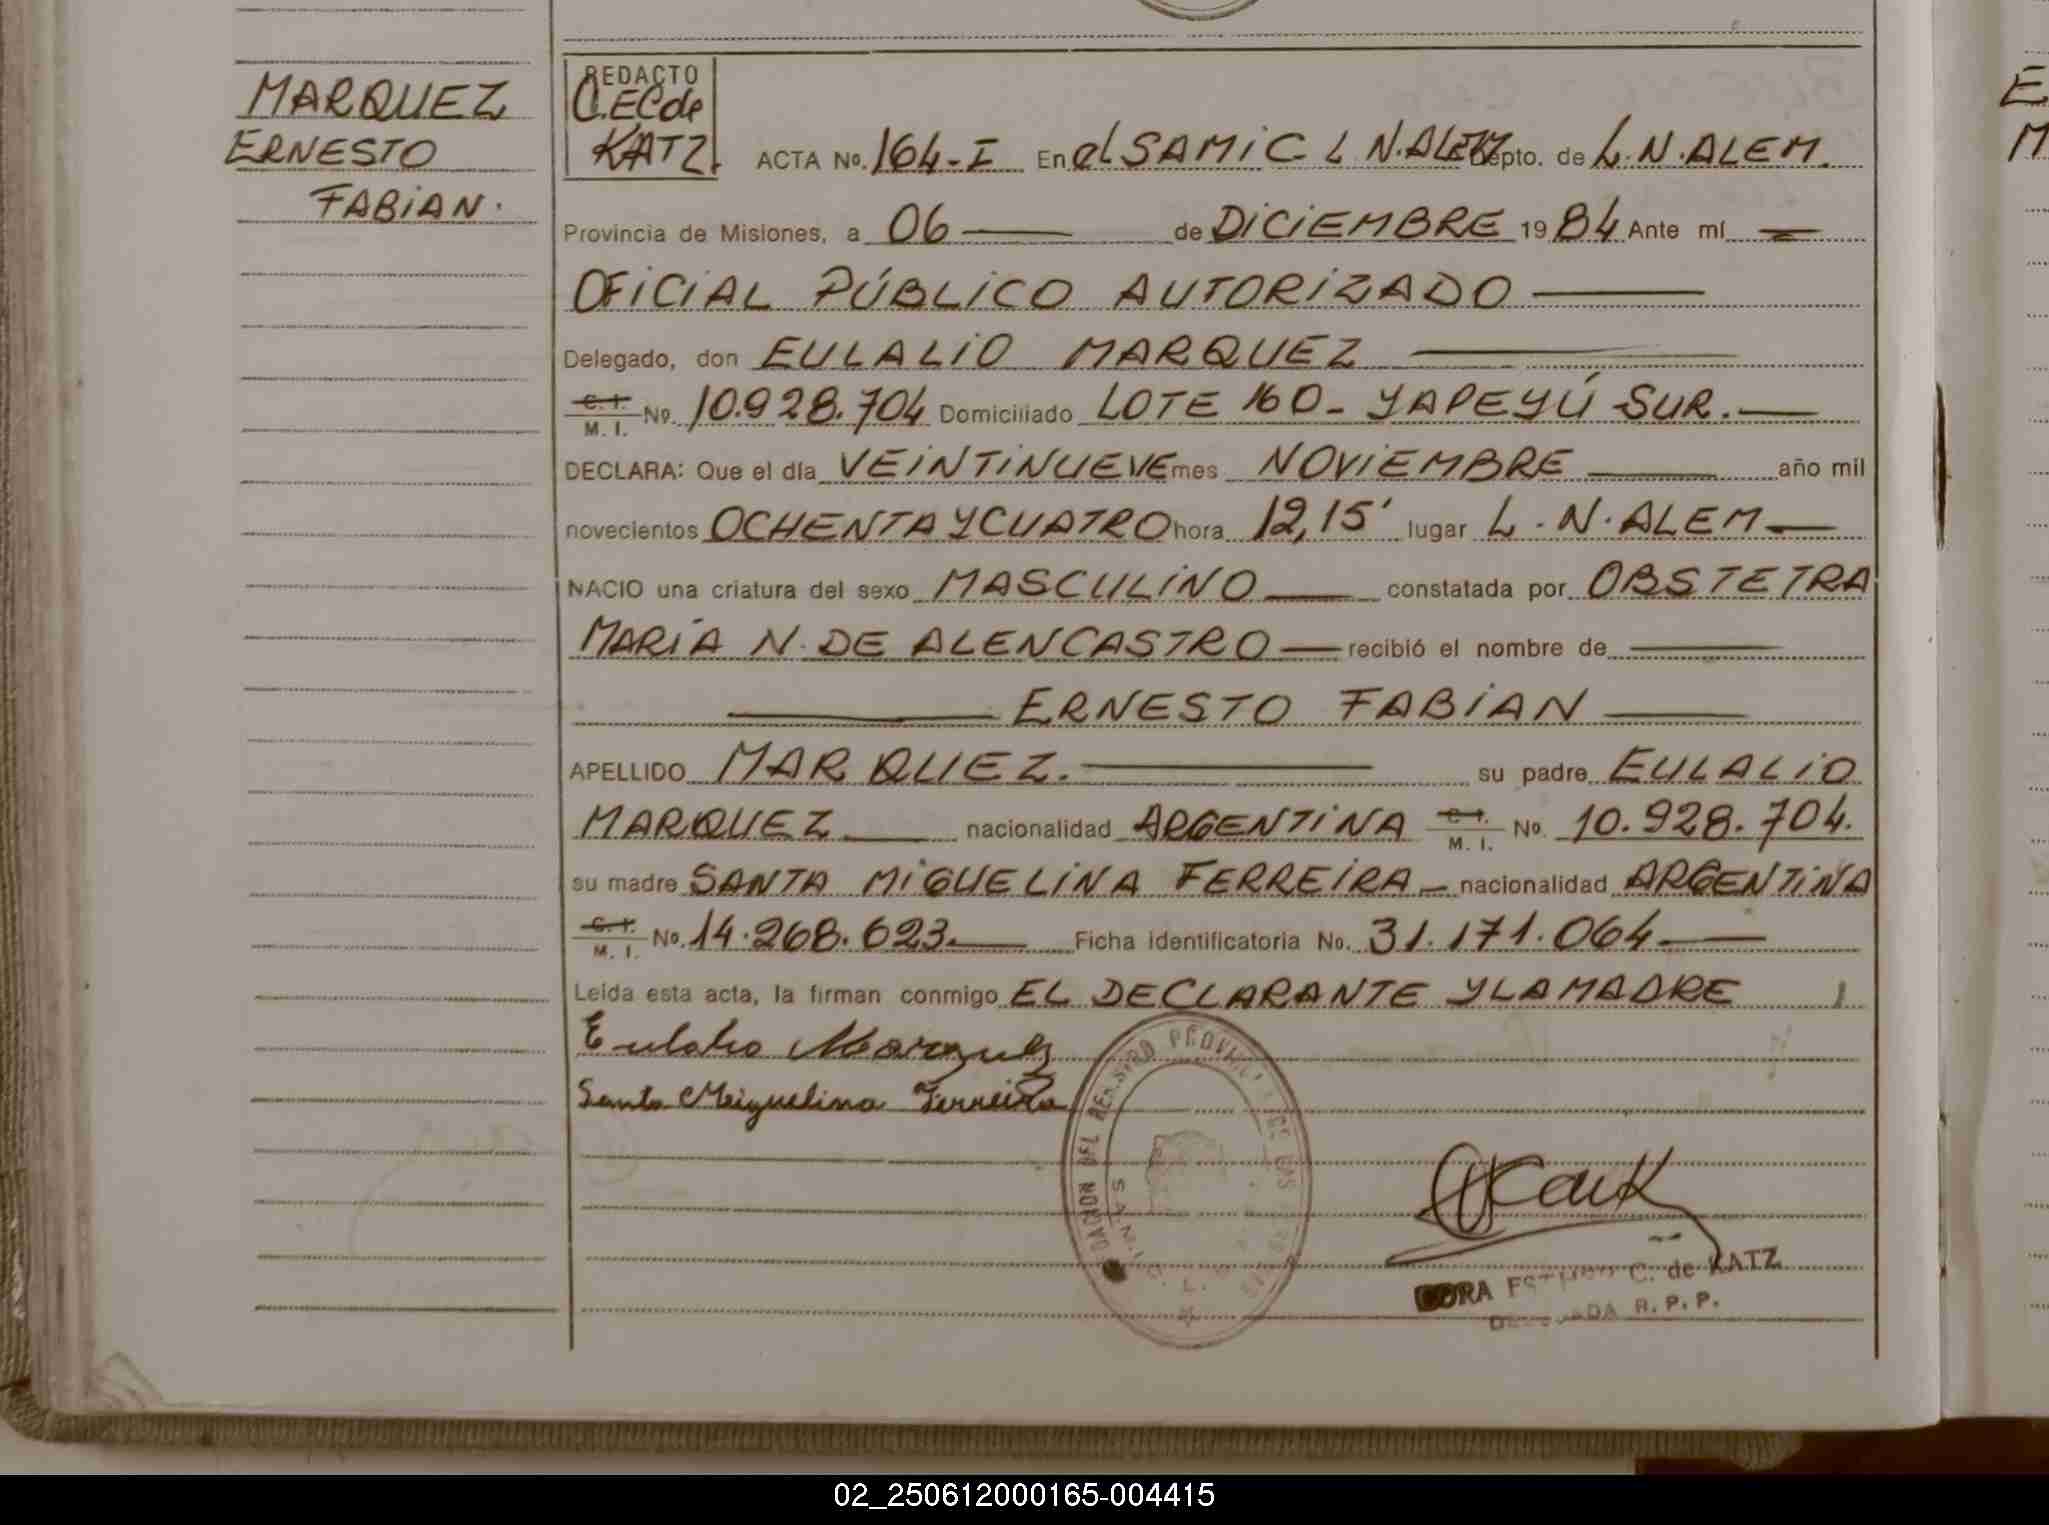 MARQUEZ
ERNESTO
FABIAN.
REDACTO
C.E.C de
KATZ.
ACTA No. 164-I En el SAMIC L.N.ALEM Depto. de L.N.ALEM.
Provincia de Misiones, a 06 de DICIEMBRE 1984 Ante mí
OFICIAL PÚBLICO AUTORIZADO
Delegado, don EULALIO MARQUEZ
C. I. M. I. No. 10.928.704 Domiciliado LOTE 160- YAPEYÚ SUR.
DECLARA: Que el día VEINTINUEVE mes NOVIEMBRE año mil
novecientos OCHENTA Y CUATRO hora 12,15' lugar L.N.ALEM
NACIO una criatura del sexo MASCULINO constatada por OBSTETRA
MARÍA N. DE ALENCASTRO recibió el nombre de
ERNESTO FABIAN
APELLIDO MARQUEZ. su padre EULALIO
MARQUEZ nacionalidad ARGENTINA C. I. M. I. No. 10.928.704.
su madre SANTA MIGUELINA FERREIRA nacionalidad ARGENTINA
C. I. M. I. No. 14.268.623. Ficha identificatoria No. 31.171.064
Leída esta acta, la firman conmigo EL DECLARANTE Y LA MADRE
Eulalio Marquez
Santa Miguelina Ferreira
DEL REGISTRO PROVINCIAL DE LAS
C. de KATZ
R. P. P.
E
M
02_250612000165-004415